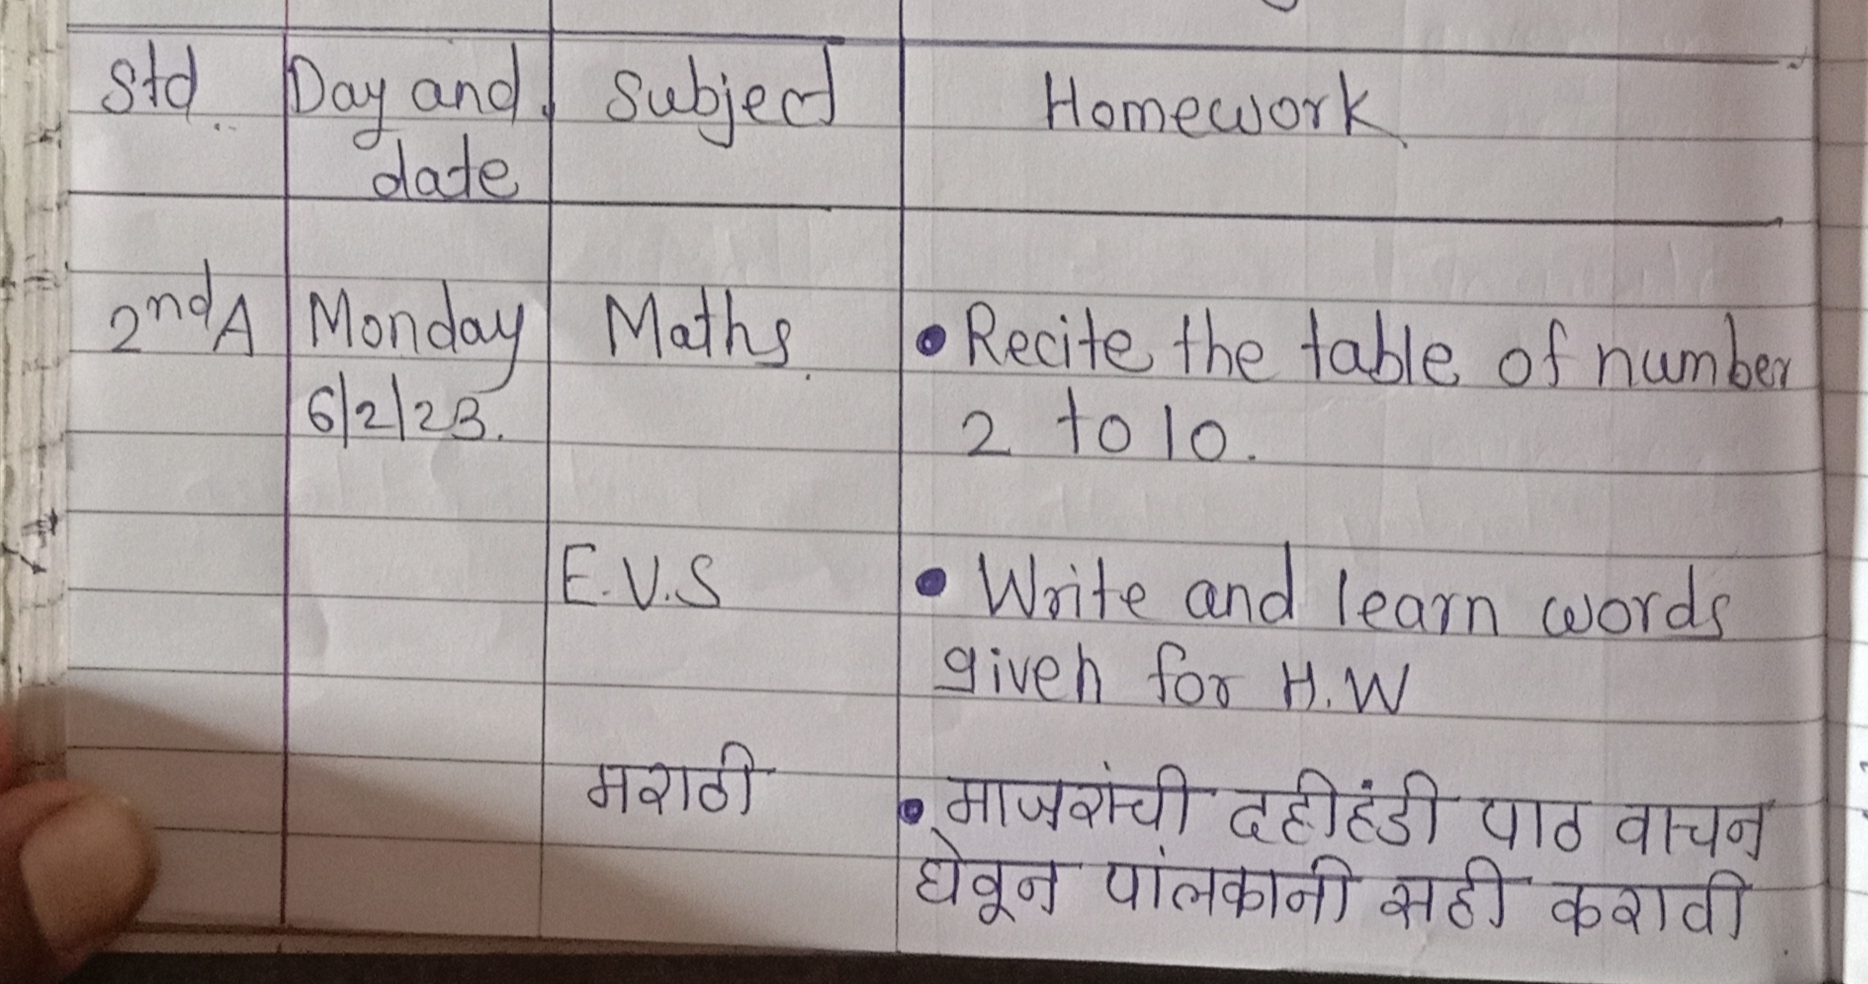 Std Day and Subject Homework
date
2nd A Monday Maths • Recite the table of number
6/2/23. 2 to 10.
E.V.S • Write and learn words
given for H.W
मराठी • माजरांची दहीहंडी पाठ वाचन
घेवून पांलकानी सही करावी